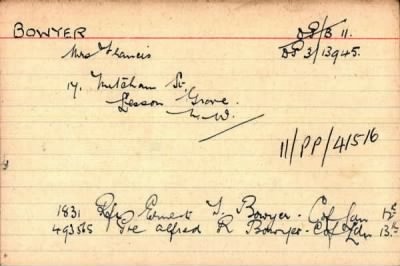 BOWYER
DP/3 11.
Mrs Francis
DP 3/13945.
17. Mitcham St.
Lesson Grove.
N.W.
11/PP/41516
1831 Rfn Ernest J. Bowyer. C of Ldn 12th
493565 Pte Alfred R Bowyer. C of Ldn 13th